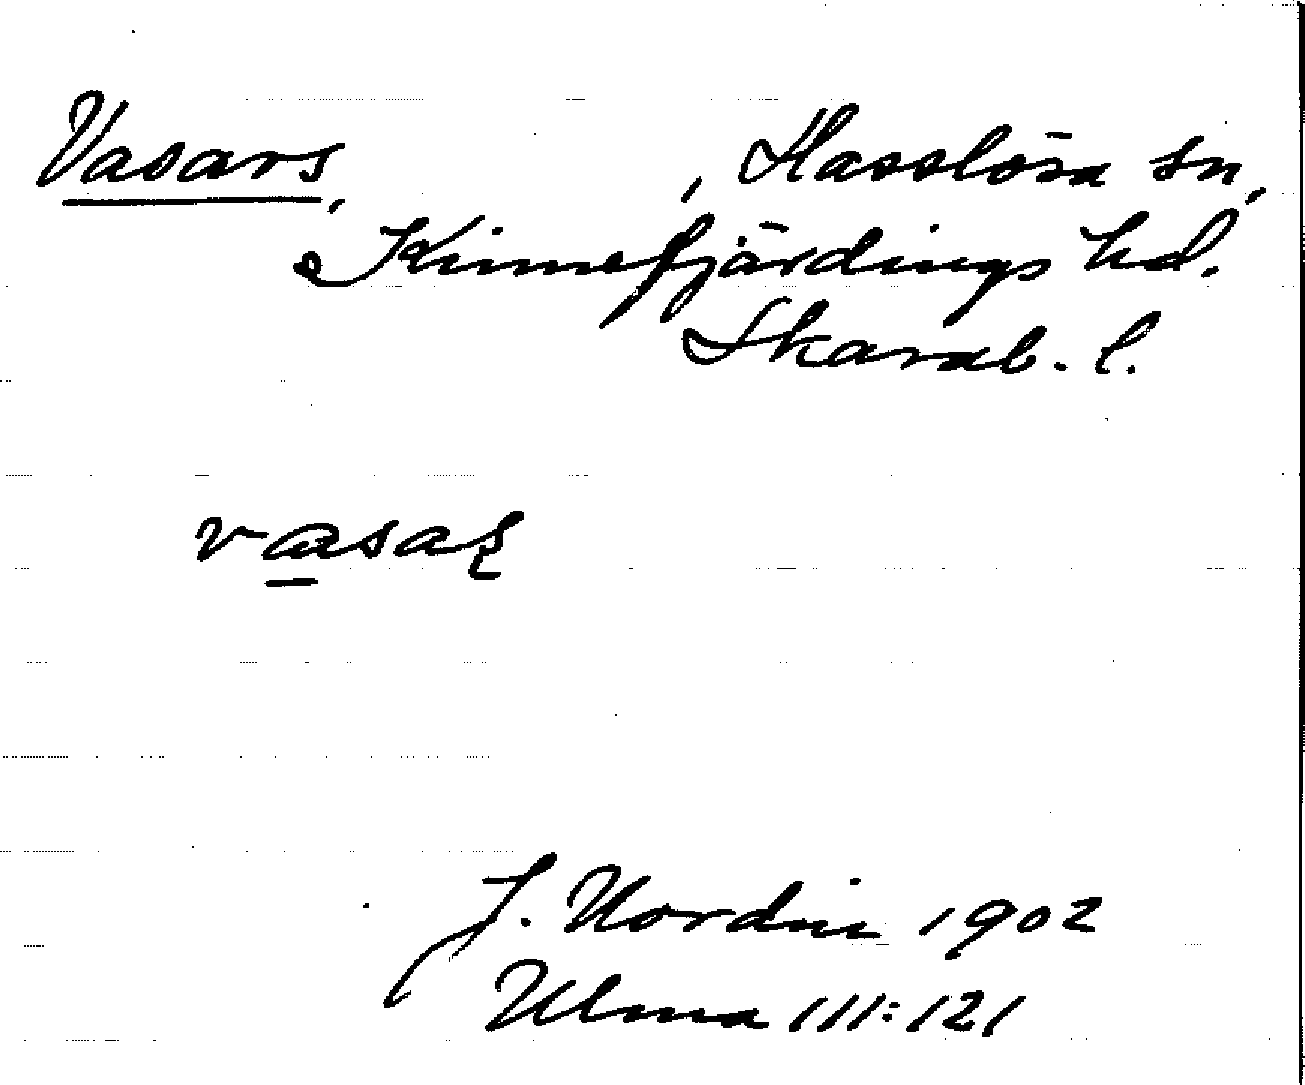 Vasars, , Hasslösa sn,
Kinnefjärdings hd.
Skarab. l.
vasaʂ
J. Nordin 1902
Ulma 111:121